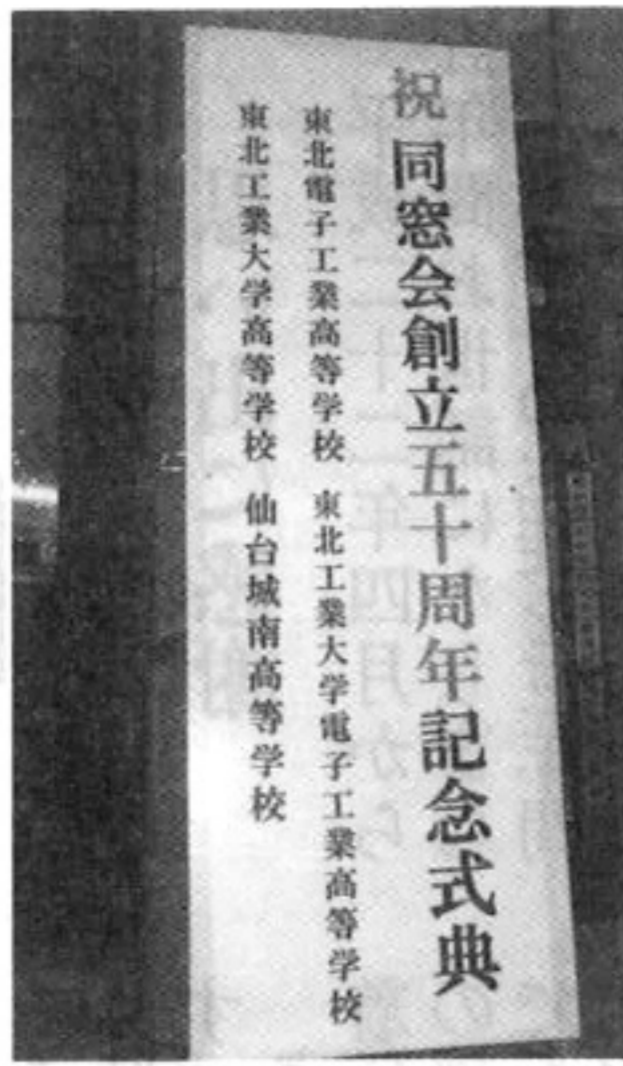 祝 同窓会創立五十周年記念式典
東北電子工業高等学校 東北工業大学電子工業高等学校
東北工業大学高等学校 仙台城南高等学校